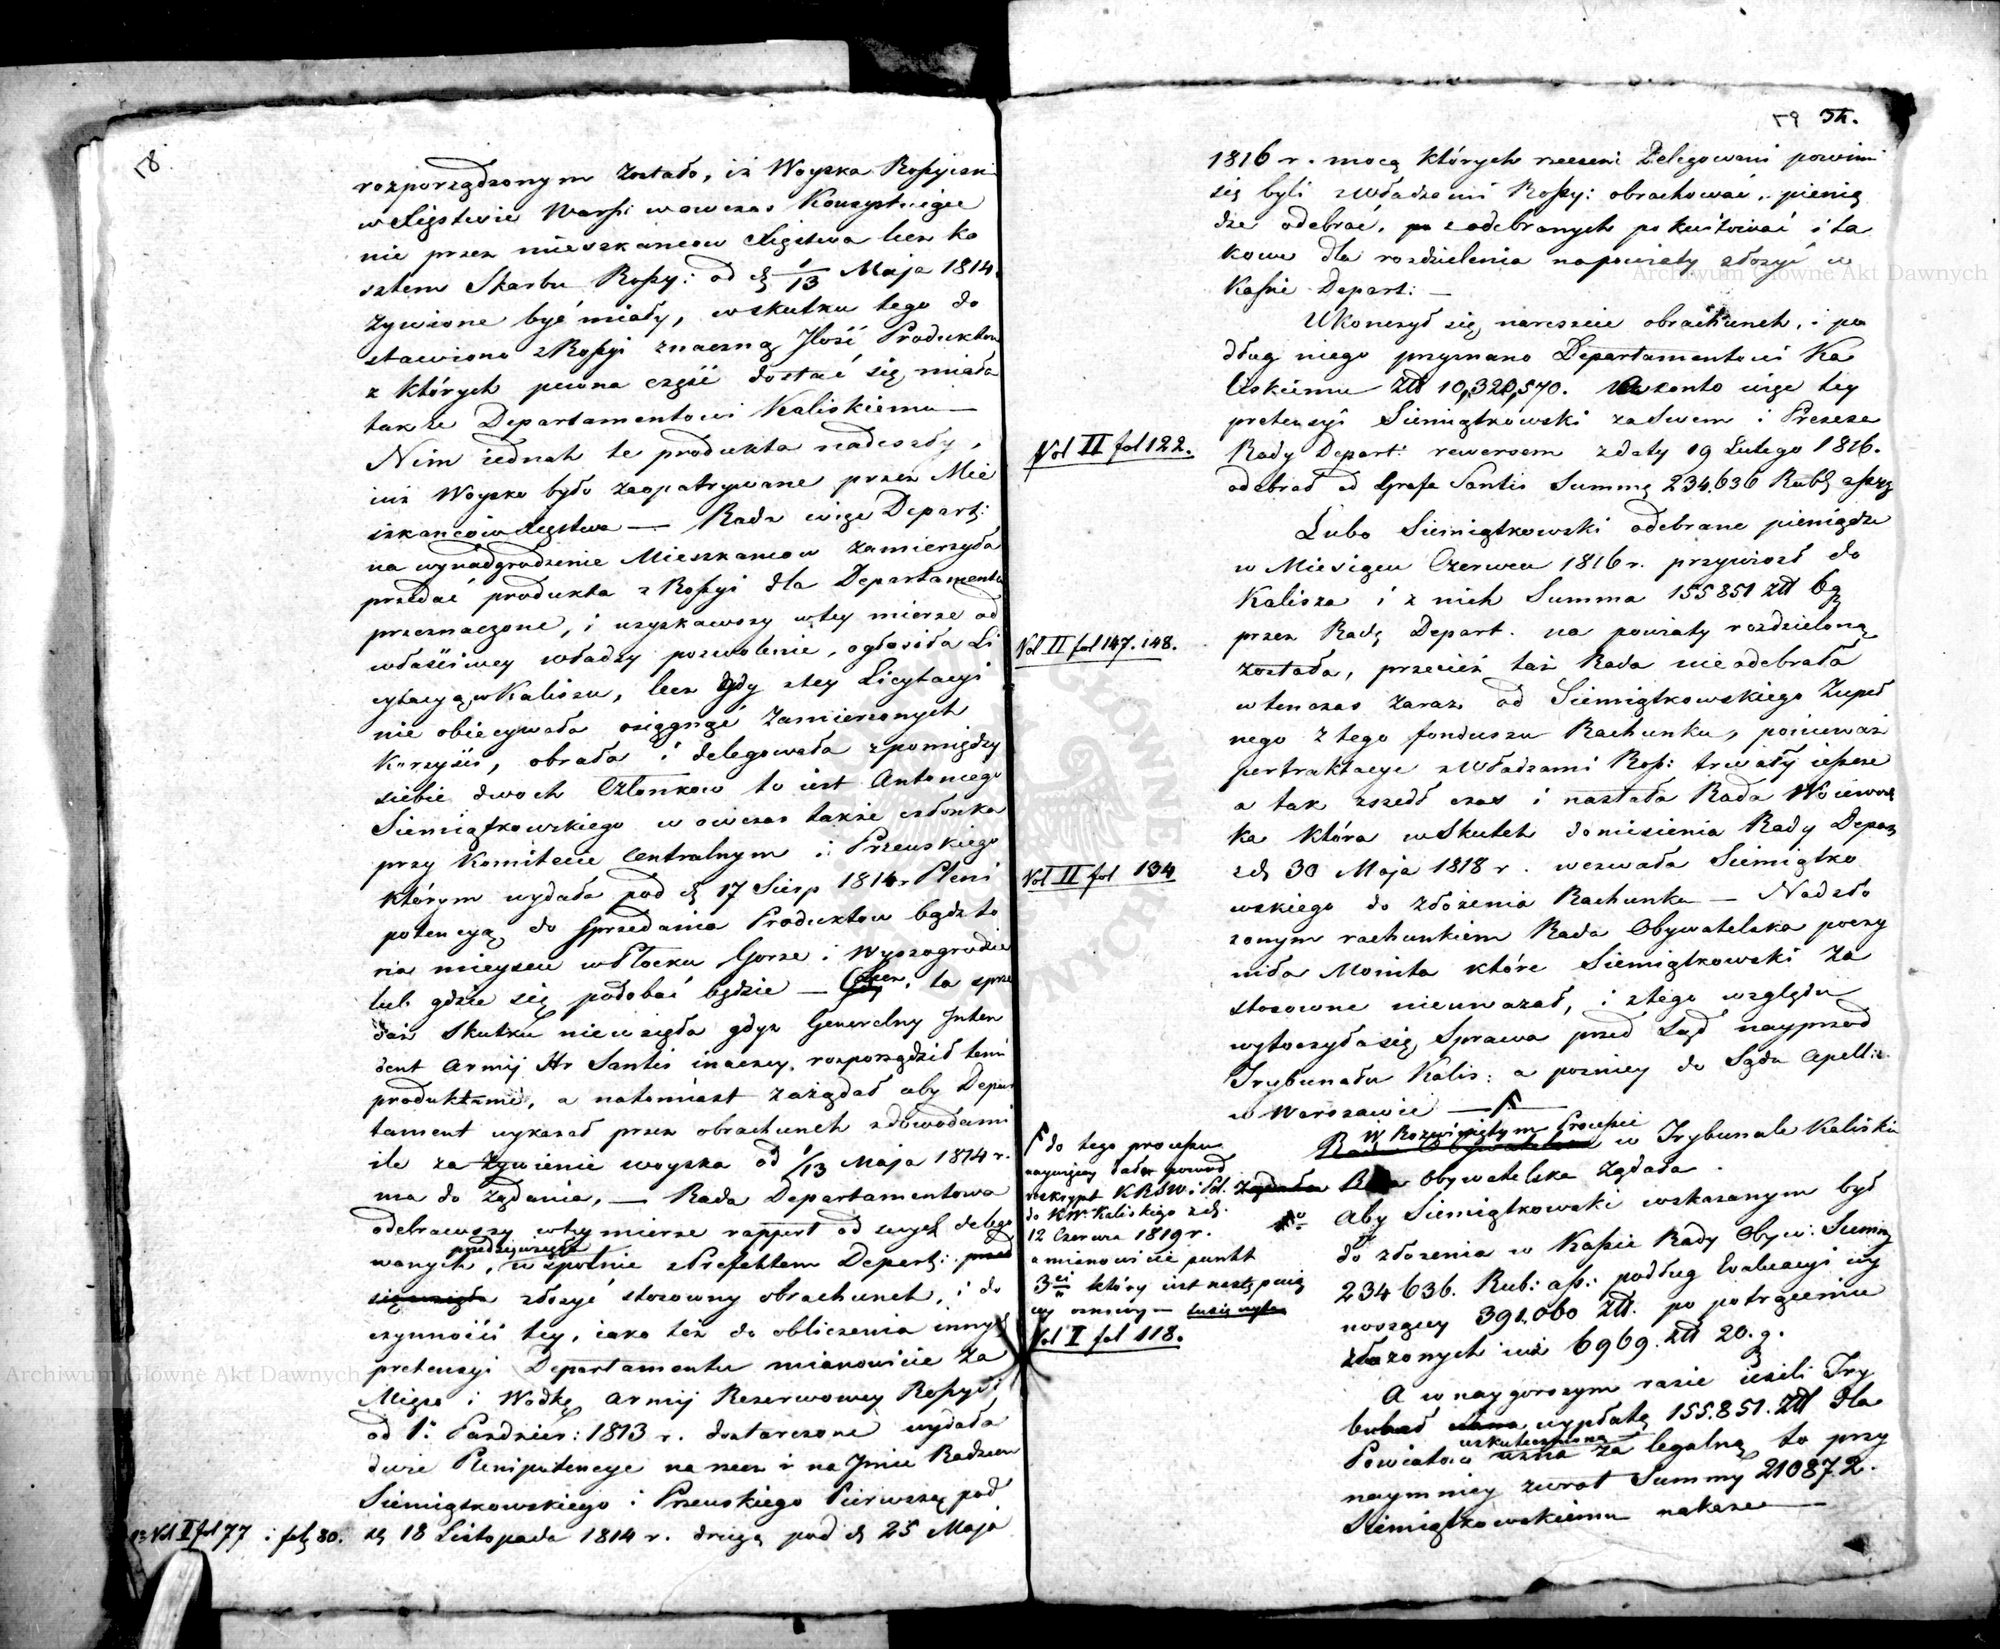 78.
rozporządzonym zostało, iż Woyska Rossyiskie
w Xięstwie Warsz: wowczas Konsystuiące
nie przez mieszkancow Xięstwa lecz ko
sztem Skarbu Rossy: od d. 1/13 Maja 1814
żywione być miały, w skutku tego do
stawiono z Rossyi znaczną Jlość Produktow
z których pewna część dostać się miała
także Departamentowi Kaliskiemu —
Nim iednak te produkta nadeszły,
iuż Woysko było zaopatrywane przez Mie
szkancow Xięstwa — Rada więc Depart:
na wynadgrodzenie Mieszkancow zamierzyła
przedać produkta z Rossyi dla Departamentu
przeznaczone, i uzyskawszy w tey mierze od
właściwey władzy pozwolenie, ogłosiła Li
cytacyą w Kaliszu, lecz gdy z tey Licytacyi
nie obiecywała osiągnąć zamierzonych
Korzyści, obrała i delegowała z pomiędzy
siebie dwoch Członkow to iest Antoniego
Siemiątkowskiego w owczas także członka
przy Komitecie Centralnym i Przeuskiego
którym wydała pod d. 17 Sierp 1814 r Pleni
potencyą do sprzedania Produktow bądz to
na mieyscu w Płocku Gorze i Wyszogrodzie
lub gdzie się podobać będzie — Lecz, ta sprze
daż skutku nie wzięła gdyż Generalny Inten
dent Armij Hr Santis inaczey, rozporządził temi
produktami, a natomiast zażądał aby Depar
tament wykazał przez obrachunek z dowodami
ile za żywienie woyska od 1/13 Maja 1814 r.
ma do żądania, — Rada Departamentowa
odebrawszy w tym mierze rapport od swych delego
przedsięwzięła
wanych, wspolnie z Prefektem Depart: przed
się wzięła złożyć stosowny obrachunek, i do
czynności tey, iako też do obliczenia innych
pretensyi Departamentu mianowicie za
Mięso i Wodkę Armij Rezerwowey Rossyi:
od 1. Pazdzier: 1813 r. dostarczone wydała
dwie Plenipotencye na rzecz i na Jmie Radzcow
Siemiątkowskiego i Przeuskiego Pierwszą pod
Vol I fol 77 i fol 80.
d. 18 Listopada 1814 r. drugą pod d. 25 Maja
79 34.
1816 r. mocą których rzeczeni Delegowani powinni
się byli z władzami Rossy: obrachować, pienią
dze odebrać, z odebranych pokwitować i ta
kowe dla rozdzielenia na powiaty złożyć w
Kassie Depart: —
Ukonczył się nareszcie obrachunek, i po
dług niego przyznano Departamentowi Ka
liskiemu Złł 10,320,570. Na konto więc tey
pretensyi Siemiątkowski za Swem i Prezesa
Vol II fol 122.
Rady Depart: rewersem z daty 19 Lutego 1816.
odebrał od Grafa Santis Summę 234.636 Rubli assyg
Lubo Siemiątkowski odebrane pieniądze
w Miesiącu Czerwcu 1816 r. przywiozł do
Kalisza i z nich Summa 155851 złł 6 g
przez Radę Depart. na powiaty rozdzieloną
Vol II fol 147. 148.
została, przecież taż Rada nie odebrała
wtenczas zaraz od Siemiątkowskiego zupeł
nego z tego funduszu Rachunku, ponieważ
pertraktacye z Władzami Ross: trwały ieszcze
a tak zszedł czas i nastała Rada Woiewodz
ka która w skutek doniesienia Rady Depar
Vol II fol 134
z d. 30 Maja 1818 r. wezwała Siemiątko
wskiego do złożenia Rachunku — Nad zło
zonym rachunkiem Rada Obywatelska poczy
niła Monita które Siemiątkowski za
stosowne nie uważał, i z tego względu
wytoczyła się Sprawa przed Sąd nayprzod
Trybunału Kalis: a pozniey do Sądu Apell:
w Warszawie —
do tego processu
naywięcey dał powod
reskrypt KRSW i Pol.
do KW. Kaliskiego z d.
12 Czerwca 1819 r.
a mianowicie punkt
3ci który iest następuią
cy osnowy —
Vol I fol 118.
W Rozwiniętym Processie
Rada Obywatelska w Trybunale Kaliskim
Żądała Rada Obywatelska żądała.
Aby Siemiątkowski wskazanym był
do złożenia w Kassie Rady Obyw: Summy
234636. Rub: ass: podług Ewaluacyi wy
noszącey 391.060 złł. po potrąceniu
złożonych iuż 6969. złł 20. g.
A w naygorszym razie ieżeli Try
bunał wypłatę 155.851. złł dla
uskutecznioną
Powiatow uzna za legalną to przy
naymniey zwrot Summy 210872.
Siemiątkowskiemu nakaze —